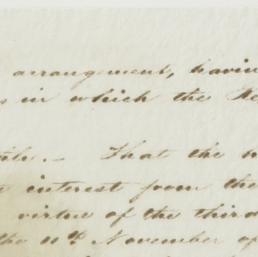 arrangement, havin
s in which the Re
That the
interest from the
virtue of the third
the 11th November of